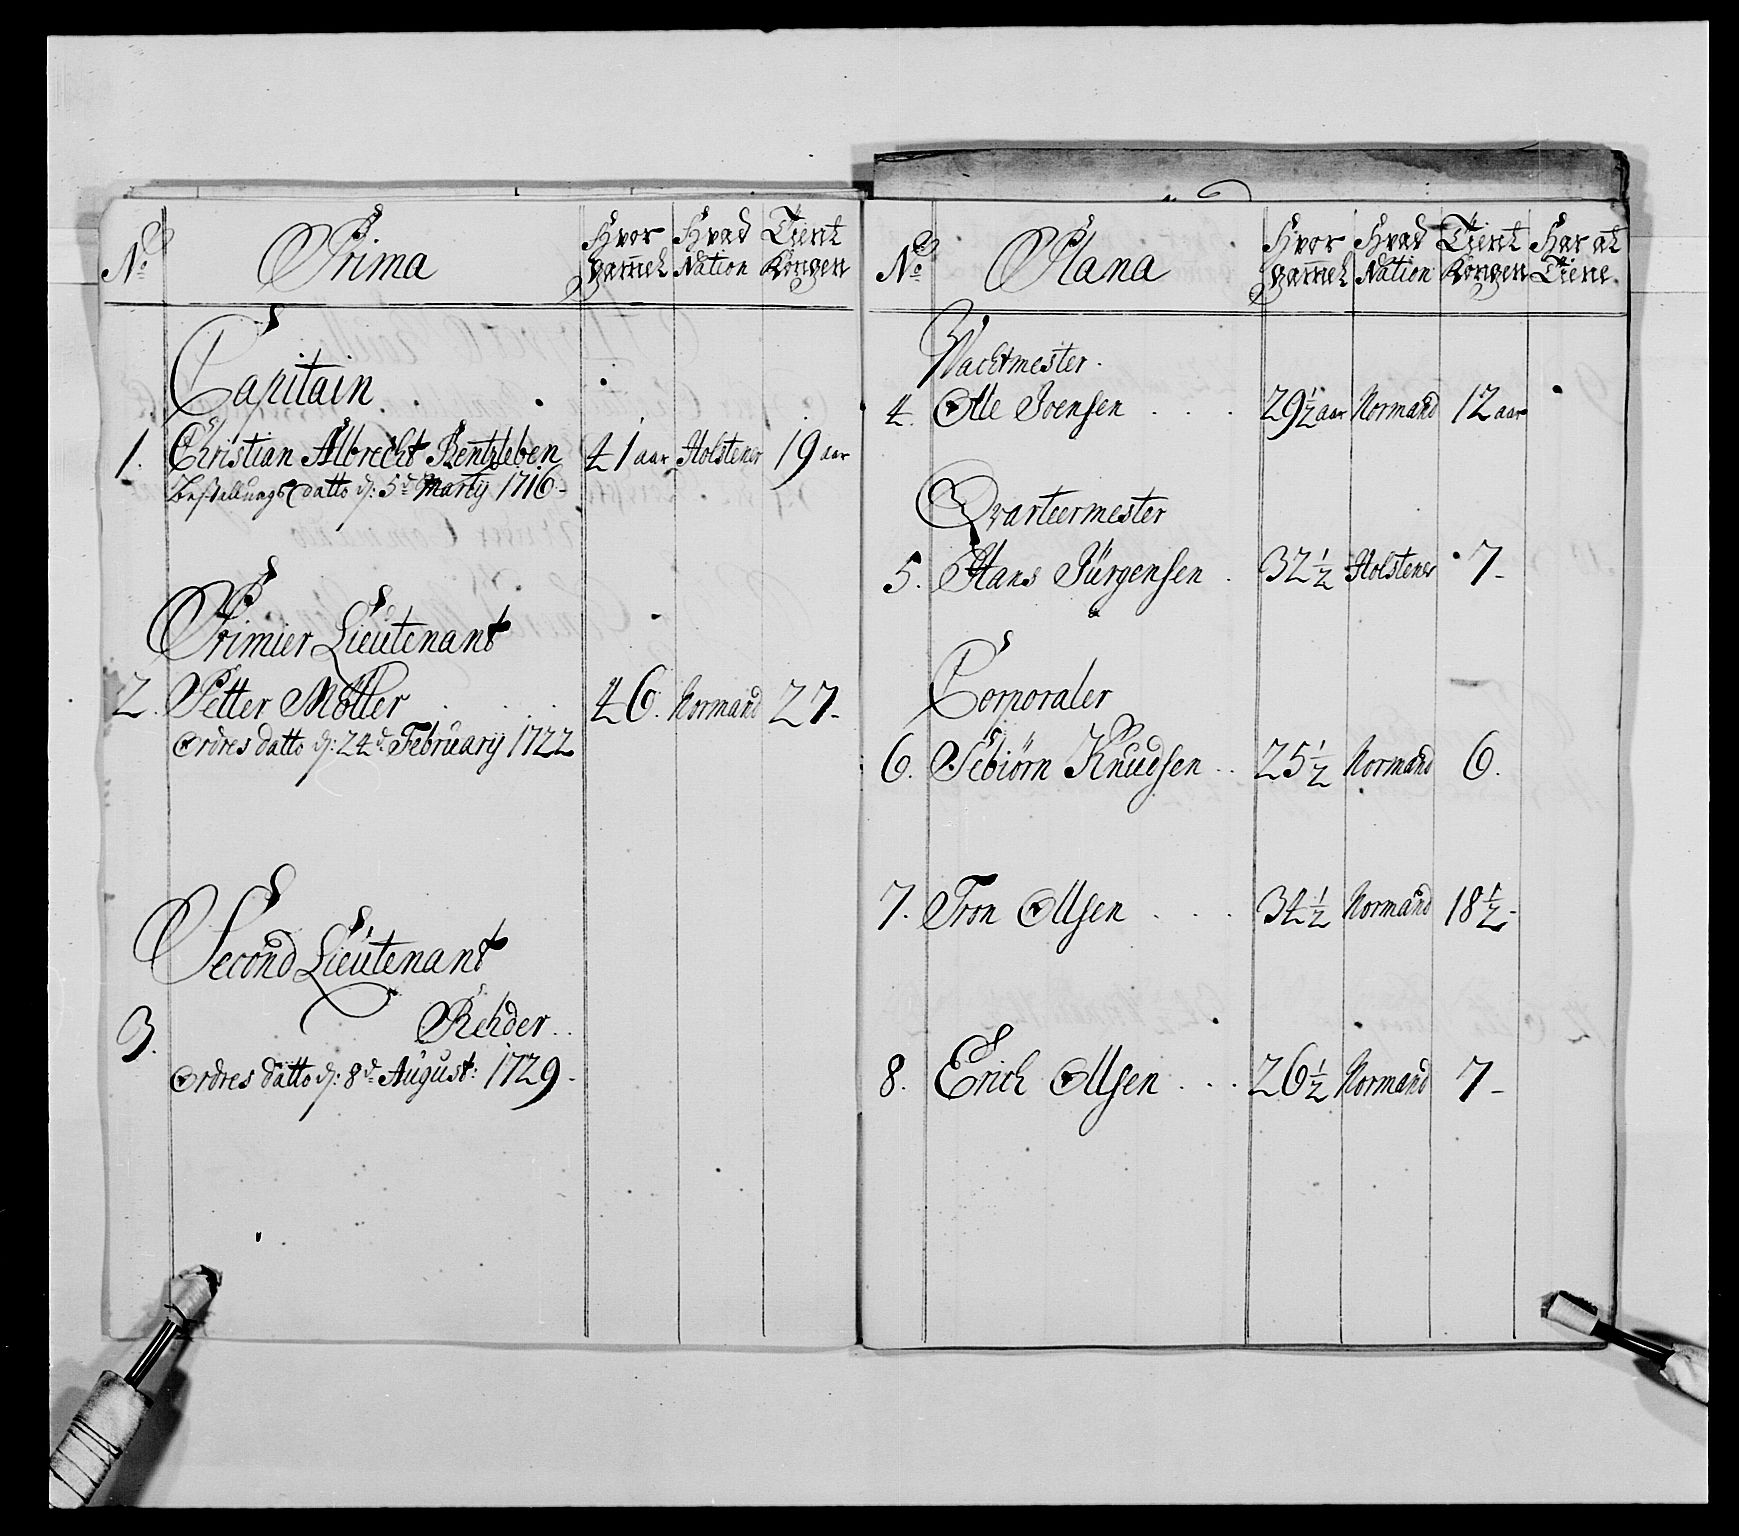 No Prima Hvor gammel Hvad Nation Tient Kongen
Capitain
1. Christian Albrecht Bentzleben 41 aar Holstener 19 aar
Bestallungs datto d: 5t Marty 1716-
Primier Lieutenant
2. Petter Möller 46. Normand 27-
Ordres datto d: 24d February 1722
Second Lieutenant
3. Rehder..
Ordres datto d: 8d August: 1729-
No Plana Hvor gammel Hvad Nation Tient Kongen Har at Tiene.
Wachtmester.
4. Olle Joensen . . . 29 1/2 aar Normand 12 aar
Qvarteermester
5. Hans Jürgensen . 32 1/2 Holstener 7-
Corporaler
6. Tebiörn Knudsen .. 25 1/2 Normand 6.
7. Tron Ollsen . . . 34 1/2 Normand 18 1/2-
8. Erich Ollsen . . . 26 1/2 Normand 7-